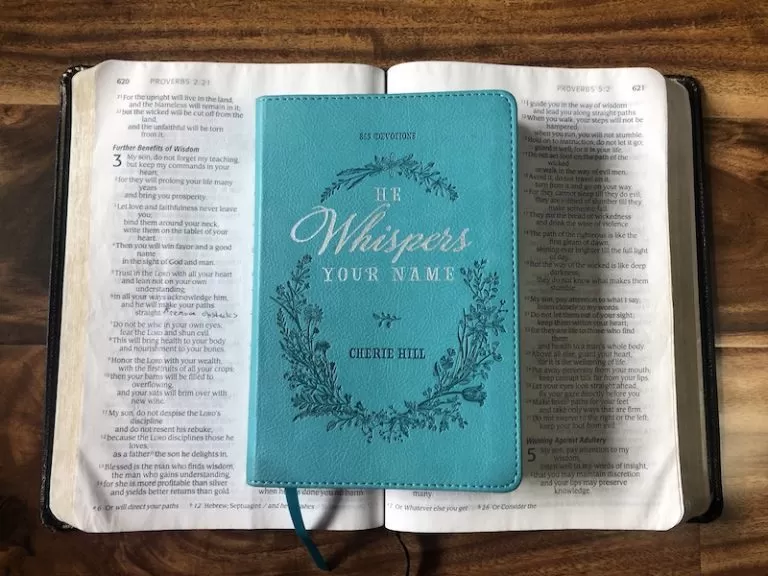 620 PROVERBS 2:21
21 For the upright will live in the land,
and the blameless will remain in it;
22 but the wicked will be cut off from the
land,
and the unfaithful will be torn
from it.
Further Benefits of Wisdom
3 My son, do not forget my teaching,
but keep my commands in your
heart,
2 for they will prolong your life many
years
and bring you prosperity.
3 Let love and faithfulness never leave
you;
bind them around your neck,
write them on the tablet of your
heart.
4 Then you will win favor and a good
name
in the sight of God and man.
5 Trust in the LORD with all your heart
and lean not on your own
understanding;
6 in all your ways acknowledge him,
and he will make your paths
straight. remove obstacles
7 Do not be wise in your own eyes;
fear the LORD and shun evil.
8 This will bring health to your body
and nourishment to your bones.
9 Honor the LORD with your wealth,
with the firstfruits of all your crops;
10 then your barns will be filled to
overflowing,
and your vats will brim over with
new wine.
11 My son, do not despise the LORD's
discipline
and do not resent his rebuke,
12 because the LORD disciplines those he
loves,
as a father the son he delights in.
13 Blessed is the man who finds wisdom,
the man who gains understanding,
14 for she is more profitable than silver
and yields better returns than gold.
a 6 Or will direct your paths b 12 Hebrew; Septuagint / and he punishes
365 DEVOTIONS
HE
Whispers
YOUR NAME
CHERIE HILL
when he has done you no harm
many.
PROVERBS 5:2 621
11 I guide you in the way of wisdom
and lead you along straight paths.
12 When you walk, your steps will not be
hampered;
when you run, you will not stumble.
13 Hold on to instruction, do not let it go;
guard it well, for it is your life.
14 Do not set foot on the path of the
wicked
or walk in the way of evil men.
15 Avoid it, do not travel on it;
turn from it and go on your way.
16 For they cannot sleep till they do evil;
they are robbed of slumber till they
make someone fall.
17 They eat the bread of wickedness
and drink the wine of violence.
18 The path of the righteous is like the
first gleam of dawn,
shining ever brighter till the full light
of day.
19 But the way of the wicked is like deep
darkness;
they do not know what makes them
stumble.
20 My son, pay attention to what I say;
listen closely to my words.
21 Do not let them out of your sight,
keep them within your heart;
22 for they are life to those who find
them
and health to a man's whole body.
23 Above all else, guard your heart,
for it is the wellspring of life.
24 Put away perversity from your mouth;
keep corrupt talk far from your lips.
25 Let your eyes look straight ahead,
fix your gaze directly before you.
26 Make level paths for your feet
and take only ways that are firm.
27 Do not swerve to the right or the left;
keep your foot from evil.
Warning Against Adultery
5 My son, pay attention to my
wisdom,
listen well to my words of insight,
2 that you may maintain discretion
and your lips may preserve
knowledge.
7 Or Whatever else you get b 26 Or Consider the